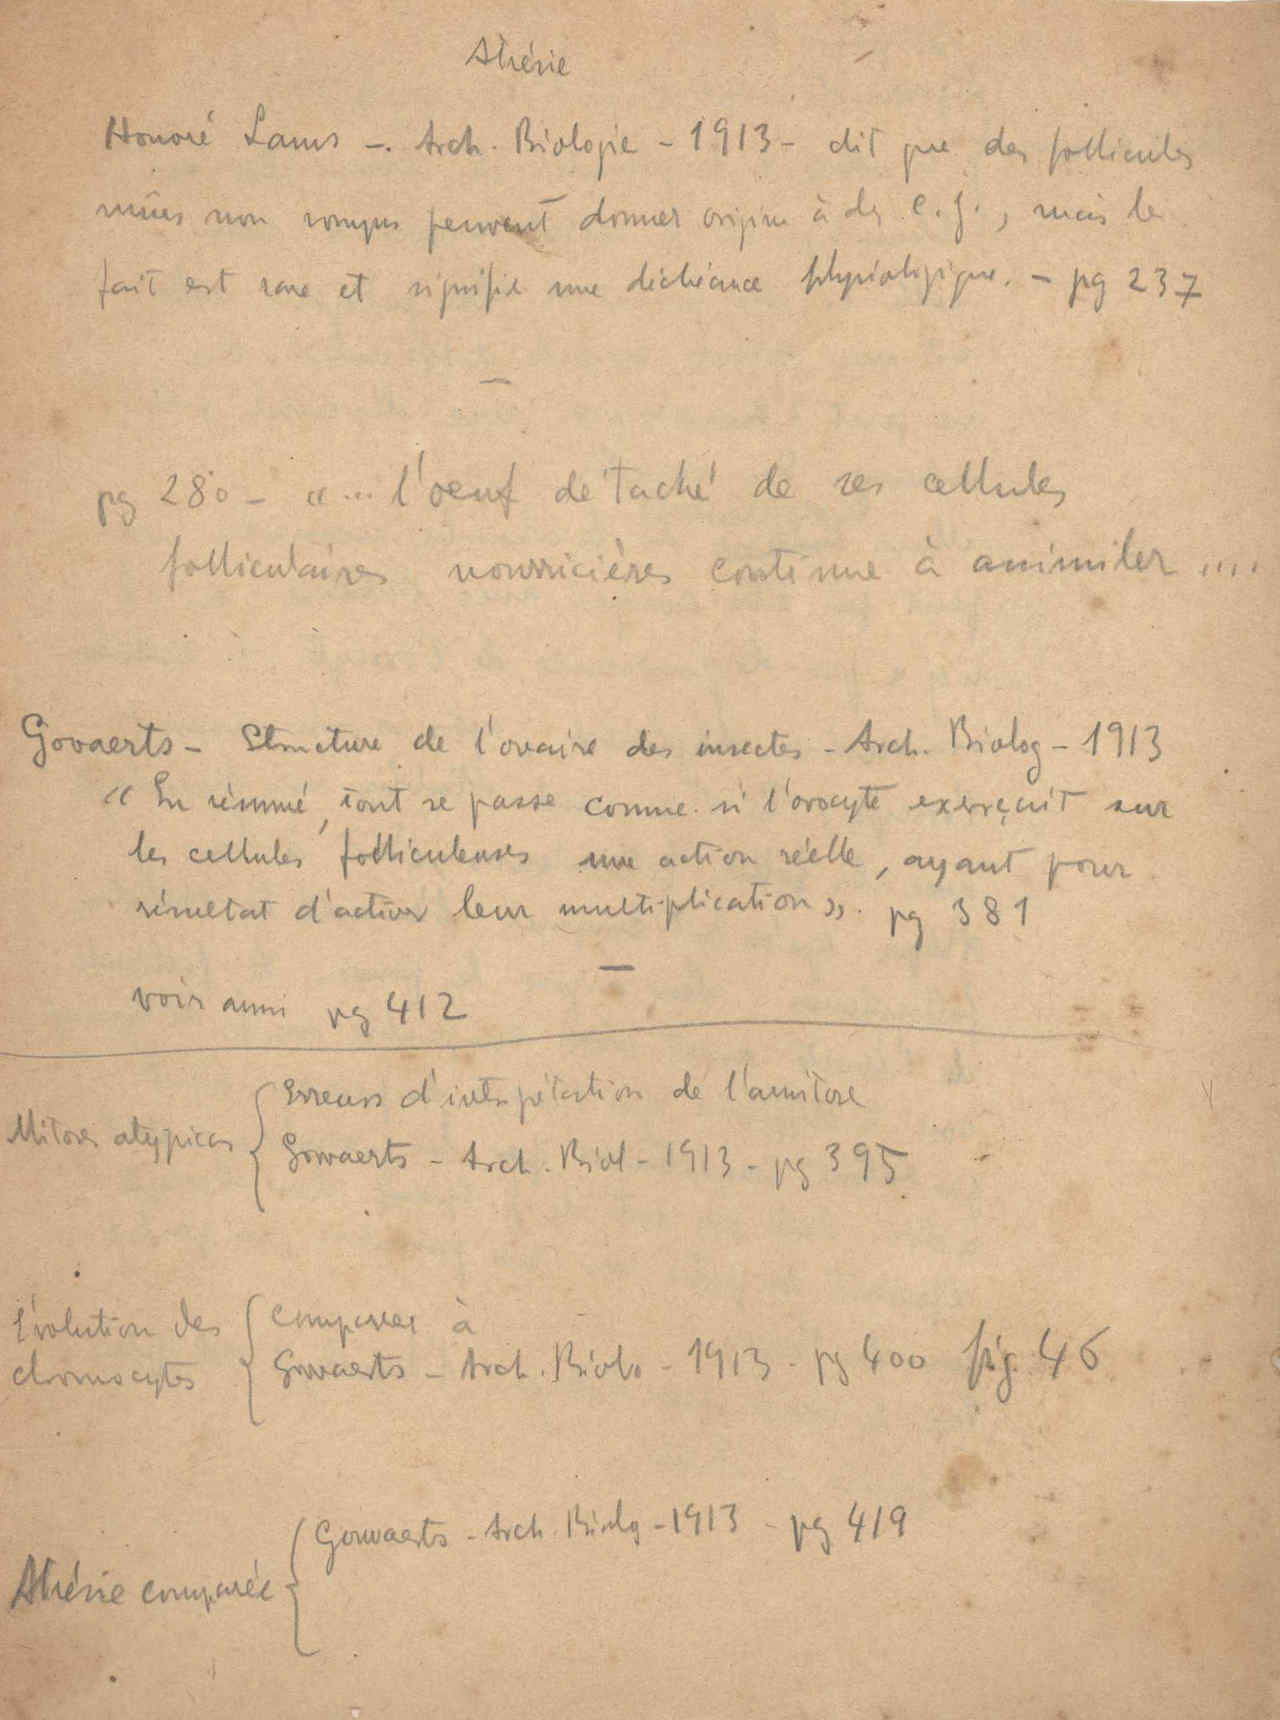 Atrésie
Honoré Lams -. Arch. Biologie - 1913 - dit que des follicules
mûrs non rompus peuvent donner origine à des c. j., mais le
fait est rare et signifie une déchéance physiologique. - pg 237
pg 280 - «... l'oeuf détaché de ses cellules
folliculaires nourricières continue à assimiler ....
Govaerts - Structure de l'ovaire des insectes - Arch. Biolog - 1913
« En résumé, tout se passe comme si l'ovocyte exerçait sur
les cellules folliculeuses une action réelle, ayant pour
résultat d'activer leur multiplication ». pg 381
voir aussi pg 412
Erreurs d'interpétation de l'amitose
Mitoses atypicas
Govaerts - Arch. Biol - 1913 - pg 395
Evolution des
chromocytes
comparer à
Govaerts - Arch. Biolo - 1913 - pg 400 fig. 46
Govaerts - Arch. Biolog - 1913 - pg 419
Atrésie comparée